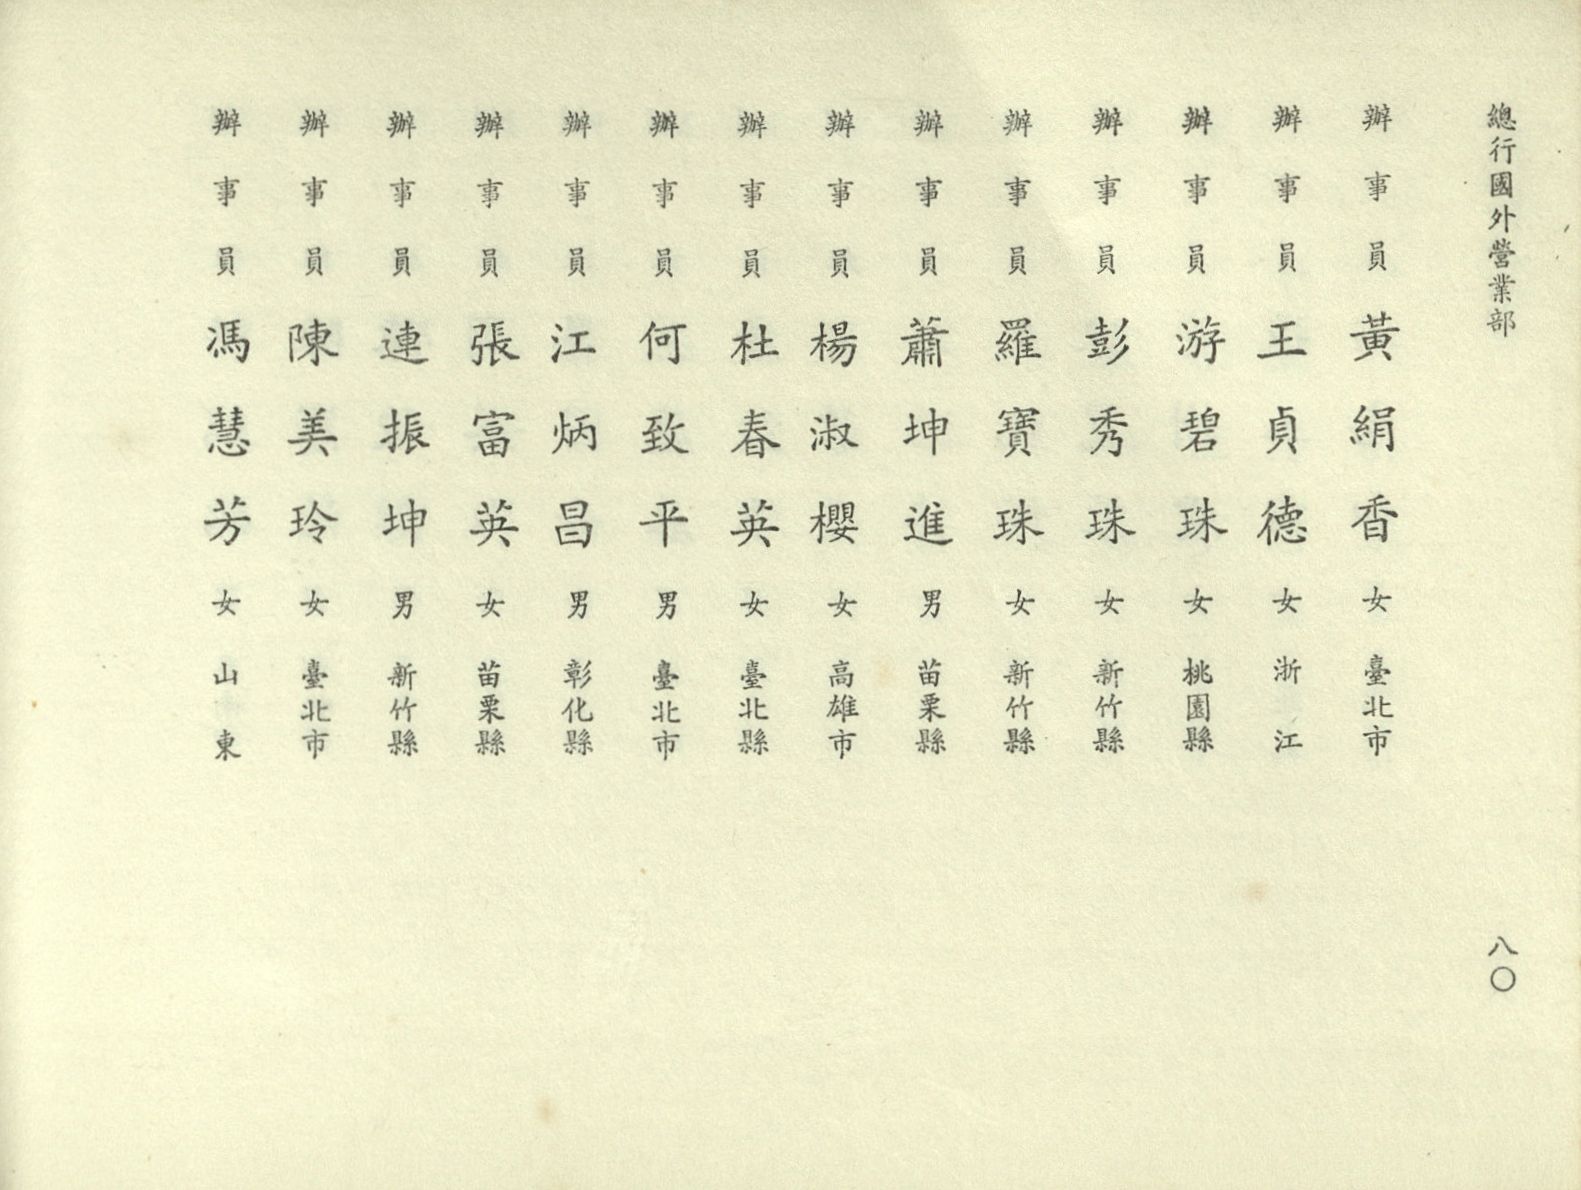 總行國外營業部
八〇
辦事員 黃絹香 女 臺北市
辦事員 王貞德 女 浙江
辦事員 游碧珠 女 桃園縣
辦事員 彭秀珠 女 新竹縣
辦事員 羅寶珠 女 新竹縣
辦事員 蕭坤進 男 苗栗縣
辦事員 楊淑櫻 女 高雄市
辦事員 杜春英 女 臺北縣
辦事員 何致平 男 臺北市
辦事員 江炳昌 男 彰化縣
辦事員 張富英 女 苗栗縣
辦事員 連振坤 男 新竹縣
辦事員 陳美玲 女 臺北市
辦事員 馮慧芳 女 山東